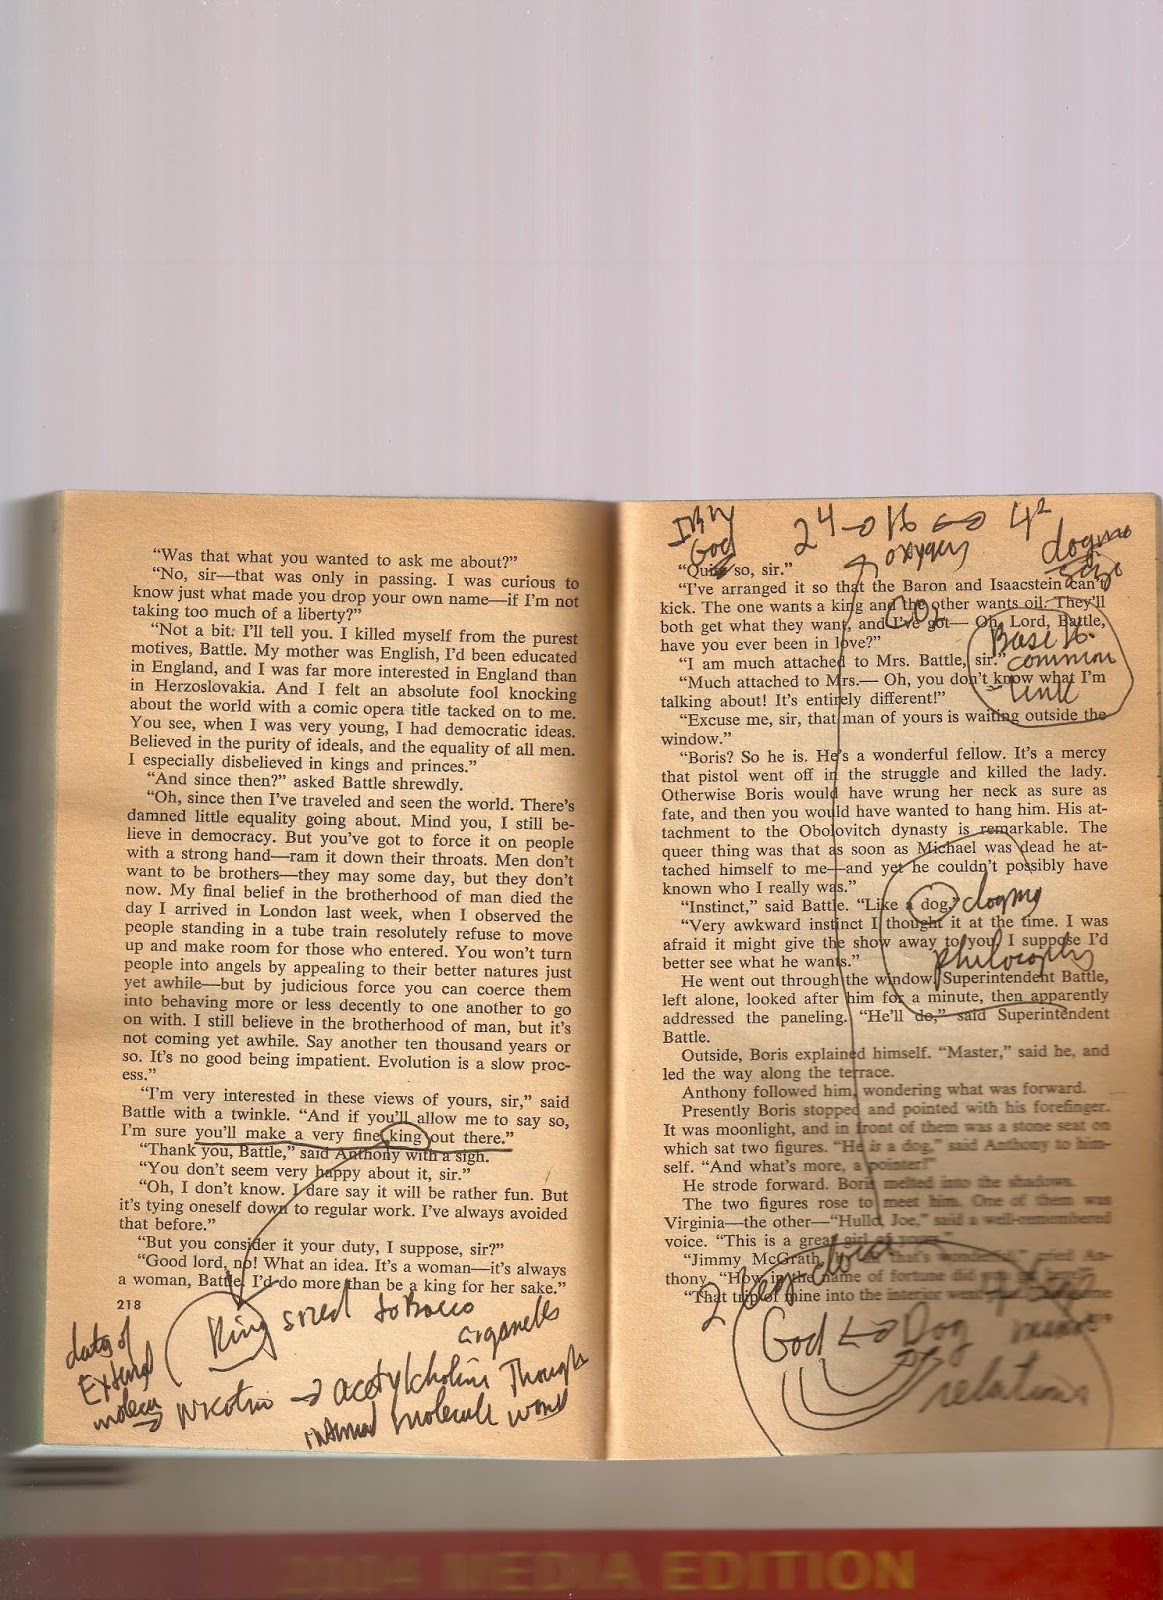 “Was that what you wanted to ask me about?”
“No, sir—that was only in passing. I was curious to
know just what made you drop your own name—if I’m not
taking too much of a liberty?”
“Not a bit. I’ll tell you. I killed myself from the purest
motives, Battle. My mother was English, I’d been educated
in England, and I was far more interested in England than
in Herzoslovakia. And I felt an absolute fool knocking
about the world with a comic opera title tacked on to me.
You see, when I was very young, I had democratic ideas.
Believed in the purity of ideals, and the equality of all men.
I especially disbelieved in kings and princes.”
“And since then?” asked Battle shrewdly.
“Oh, since then I’ve traveled and seen the world. There’s
damned little equality going about. Mind you, I still be-
lieve in democracy. But you’ve got to force it on people
with a strong hand—ram it down their throats. Men don’t
want to be brothers—they may some day, but they don’t
now. My final belief in the brotherhood of man died the
day I arrived in London last week, when I observed the
people standing in a tube train resolutely refuse to move
up and make room for those who entered. You won’t turn
people into angels by appealing to their better natures just
yet awhile—but by judicious force you can coerce them
into behaving more or less decently to one another to go
on with. I still believe in the brotherhood of man, but it’s
not coming yet awhile. Say another ten thousand years or
so. It’s no good being impatient. Evolution is a slow proc-
ess.”
“I’m very interested in these views of yours, sir,” said
Battle with a twinkle. “And if you’ll allow me to say so,
I’m sure you’ll make a very fine king out there.”
“Thank you, Battle,” said Anthony with a sigh.
“You don’t seem very happy about it, sir.”
“Oh, I don’t know. I dare say it will be rather fun. But
it’s tying oneself down to regular work. I’ve always avoided
that before.”
“But you consider it your duty, I suppose, sir?”
“Good lord, no! What an idea. It’s a woman—it’s always
a woman, Battle. I’d do more than be a king for her sake.”
218
King sized tobacco
organelles
→ acetylcholine Though
internal molecule
God
24 → 16 ↔ 4²
oxygen
“Quite so, sir.”
“I’ve arranged it so that the Baron and Isaacstein can’t
kick. The one wants a king and the other wants oil. They’ll
both get what they want, and I’ve got— Oh, Lord, Battle,
have you ever been in love?”
“I am much attached to Mrs. Battle, sir.”
“Much attached to Mrs.— Oh, you don’t know what I’m
talking about! It’s entirely different!”
“Excuse me, sir, that man of yours is waiting outside the
window.”
Base 16
common
link
“Boris? So he is. He’s a wonderful fellow. It’s a mercy
that pistol went off in the struggle and killed the lady.
Otherwise Boris would have wrung her neck as sure as
fate, and then you would have wanted to hang him. His at-
tachment to the Obolovitch dynasty is remarkable. The
queer thing was that as soon as Michael was dead he at-
tached himself to me—and yet he couldn’t possibly have
known who I really was.”
“Instinct,” said Battle. “Like a dog.”
“Very awkward instinct I thought it at the time. I was
afraid it might give the show away to you. I suppose I’d
better see what he wants.”
philosophy
He went out through the window. Superintendent Battle,
left alone, looked after him for a minute, then apparently
addressed the paneling. “He’ll do,” said Superintendent
Battle.
Outside, Boris explained himself. “Master,” said he, and
led the way along the terrace.
Anthony followed him, wondering what was forward.
Presently Boris stopped and pointed with his forefinger.
It was moonlight, and in front of them was a stone seat on
which sat two figures. “He is a dog,” said Anthony to him-
self. “And what’s more, a pointer!”
He strode forward. Boris melted into the shadows.
The two figures rose to meet him. One of them was
Virginia—the other—
“Hullo, Joe,” said a well-remembered
voice. “This is a great girl of yours.”
“Jimmy McGrath, by all that’s wonderful,” cried An-
thony. “How in the name of fortune did you get here?”
“That trip of mine into the interior went
God ↔ Dog
relations
2004 MEDIA EDITION